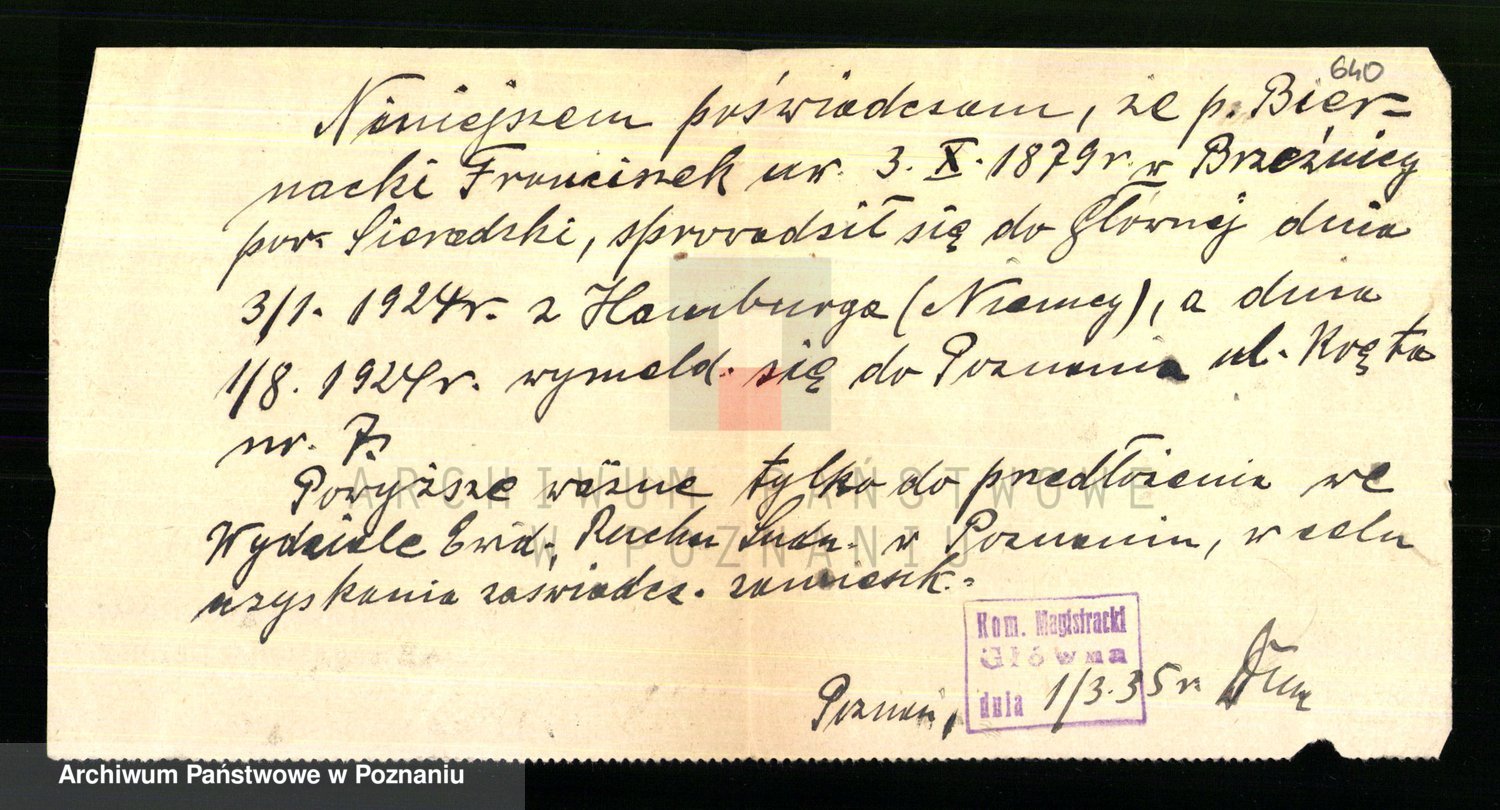 640
Niniejszem poświadczam, że p. Bier=
nacki Franciszek ur. 3. X. 1879 r. w Brzeźnicy
pow. Sieradzki, sprowadził się do Głównej dnia
3/1. 1924 r. z Hamburga (Niemcy), a dnia
1/8. 1924 r. wymeld. się do Poznania ul. Kręta
nr. 7.
Powyższe ważne tylko do przedłożenia we
Wydziale Ewid. Ruchu Ludn. w Poznaniu, w celu
uzyskania zaświadcz. zamieszk.=
Kom. Magistracki
Główna
dnia 1/3.35 r.
Poznań,
ARCHIWUM PAŃSTWOWE
W POZNANIU
Archiwum Państwowe w Poznaniu